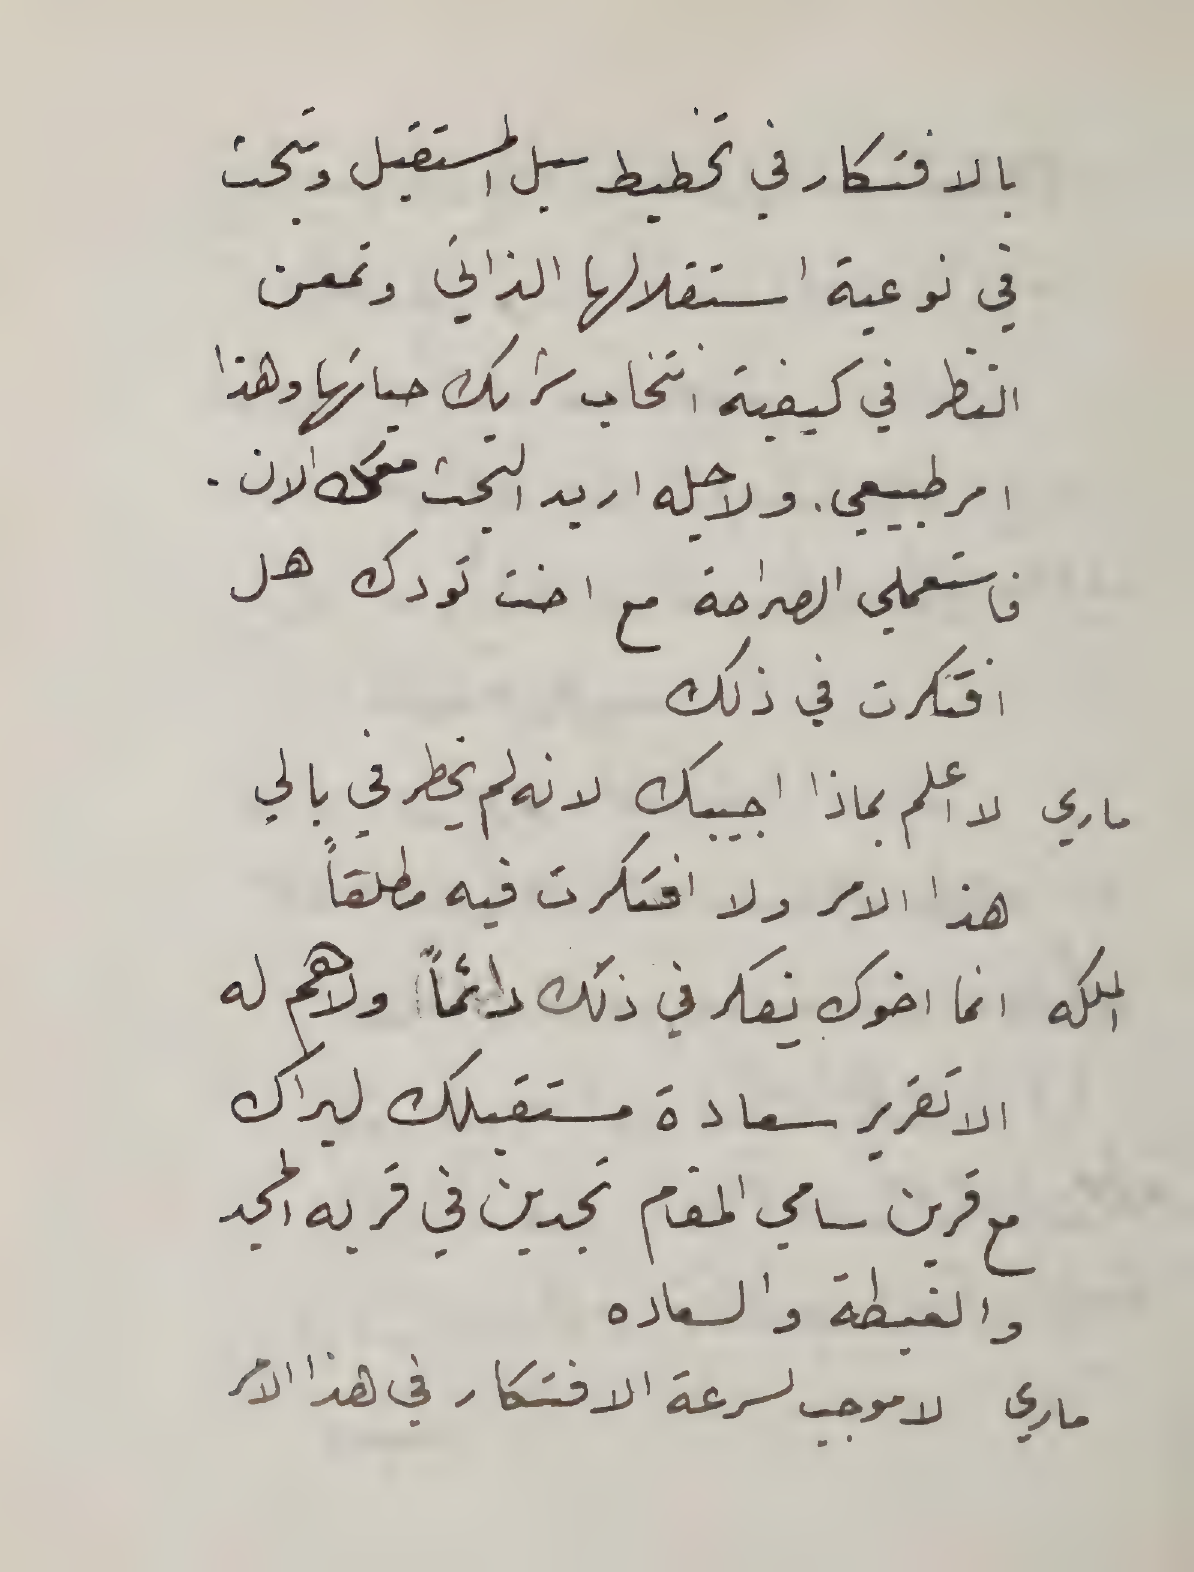 بالافتكار في تخطيط سبل المستقبل وتبحث
في نوعية استقلالها الذاتي وتمعن
النظر في كيفية انتخاب شريك حياتها وهذا
امر طبيعي. ولاجله اريد البحث معك الان.
فاستعملي الصراحة مع اخت تودك هل
افتكرت في ذلك
ماري لا اعلم بماذا اجيبك لانه لم يخطر في بالي
هذا الامر ولا افتكرت فيه مطلقاً
الملكه انما اخوك يفكر في ذلك دائماً ولا هم له
الا تقرير سعادة مستقبلك ليراك
مع قرين سامي المقام تجدين في قربه المجد
والغبطة والسعاده
ماري لا موجب لسرعة الافتكار في هذا الامر